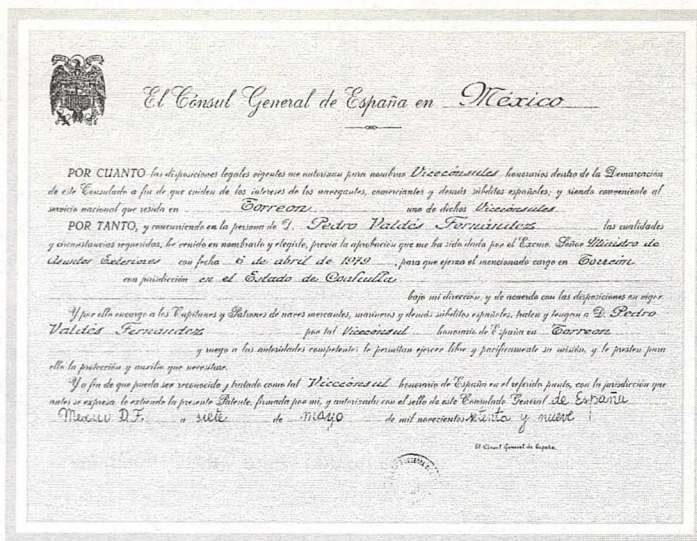 El Cónsul General de España en México
POR CUANTO las disposiciones legales vigentes me autorizan para nombrar Vicecónsules honorarios dentro de la Demarcación
de este Consulado a fin de que cuiden de los intereses de los navegantes, comerciantes y demás súbditos españoles; y siendo conveniente al
servicio nacional que resida en Torreon uno de dichos Vicecónsules
POR TANTO, y concurriendo en la persona de D. Pedro Valdés Fernández las cualidades
y circunstancias requeridas, he venido en nombrarlo y elegirle, previa la aprobación que me ha sido dada por el Excmo. Señor Ministro de
Asuntos Exteriores con fecha 6 de abril de 1979, para que ejerza el mencionado cargo en Torreón
con jurisdicción en el Estado de Coahuila
bajo mi dirección, y de acuerdo con las disposiciones en vigor.
Y por ello encargo a los Capitanes y Patrones de naves mercantes, marineros y demás súbditos españoles, traten y tengan a D. Pedro
Valdés Fernandez por tal Vicecónsul honorario de España en Torreon
y ruego a las autoridades competentes le permitan ejercer libre y pacíficamente su misión, y le presten para
ello la protección y auxilio que necesitare.
Y a fin de que pueda ser reconocido y tratado como tal Vicecónsul honorario de España en el referido punto, con la jurisdicción que
antes se expresa, le extiendo la presente Patente, firmada por mí, y autorizada con el sello de este Consulado General de España
Mexico D.F. a siete de mayo de mil novecientos setenta y nueve
El Cónsul General de España,